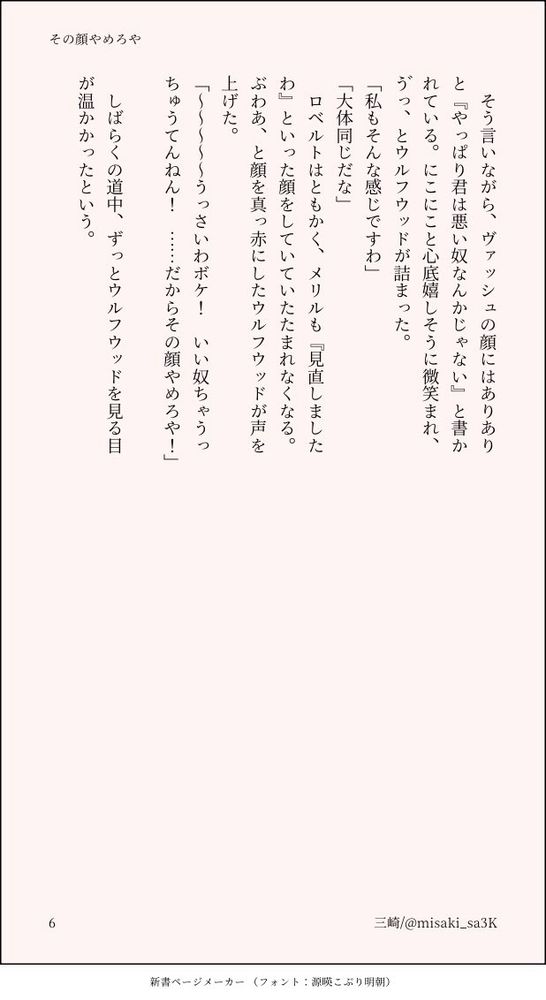 その顔やめろや
　そう言いながら、ヴァッシュの顔にはありあり
と『やっぱり君は悪い奴なんかじゃない』と書か
れている。にこにこと心底嬉しそうに微笑まれ、
ゔっ、とウルフウッドが詰まった。
「私もそんな感じですわ」
「大体同じだな」
　ロベルトはともかく、メリルも『見直しました
わ』といった顔をしていていたたまれなくなる。
ぶわあ、と顔を真っ赤にしたウルフウッドが声を
上げた。
「〜〜〜〜〜うっさいわボケ！　いい奴ちゃうっ
ちゅうてんねん！　……だからその顔やめろや！」
　しばらくの道中、ずっとウルフウッドを見る目
が温かかったという。
6
三崎/@misaki_sa3K
新書ページメーカー （フォント：源暎こぶり明朝）